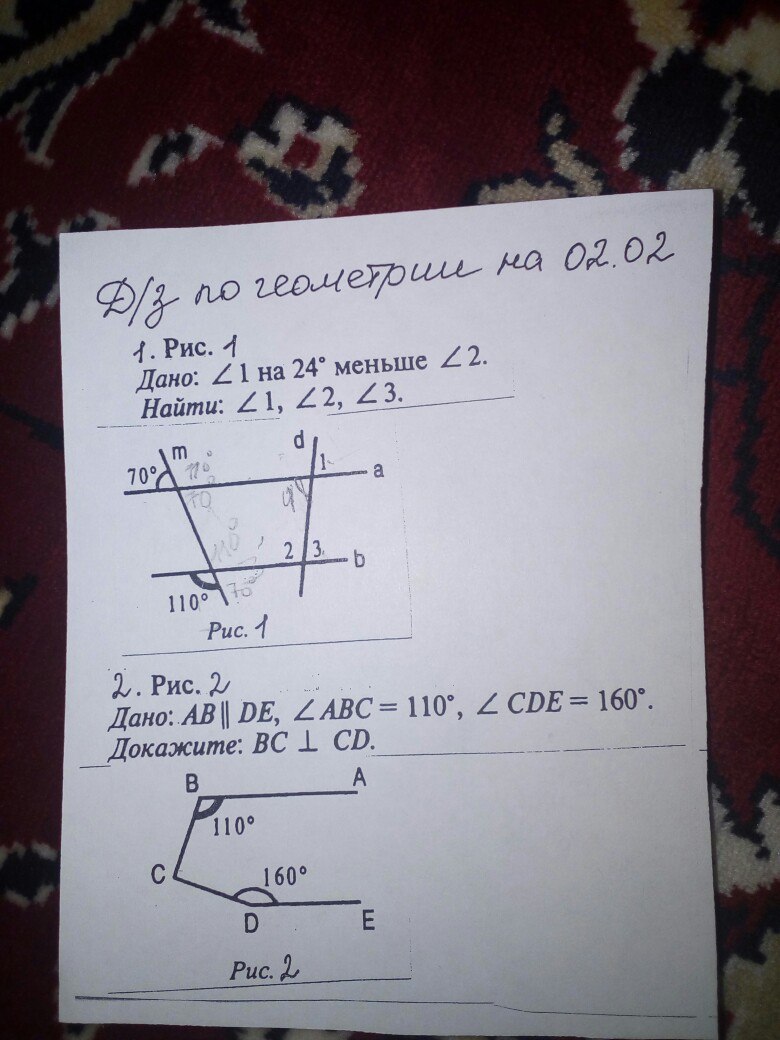 Д/з по геометрии на 02.02
1. Рис. 1
Дано: ∠1 на 24° меньше ∠2.
Найти: ∠1, ∠2, ∠3.
m
d
70°
110°
1
a
70°
110°
2
3
b
110°
70°
Рис. 1
2. Рис. 2
Дано: AB ∥ DE, ∠ABC = 110°, ∠CDE = 160°.
Докажите: BC ⊥ CD.
B
A
110°
C
160°
D
E
Рис. 2